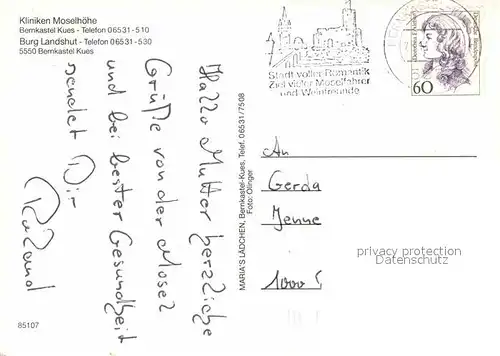 Kliniken Moselhöhe
Bernkastel Kues - Telefon 06531-510
Burg Landshut - Telefon 06531-530
5550 Bernkastel Kues
Hallo Mutter herzliche
Grüße von der Mosel
und bei bester Gesundheit
sendet Dir
Roland
85107
MARIA'S LÄDCHEN, Bernkastel-Kues, Telef. 06531/7508
Foto: Olinger
Stadt voller Romantik
Ziel vieler Moselfahrer
und Weinfreunde
60
An
Gerda
Jenne
1000
privacy protection
Datenschutz